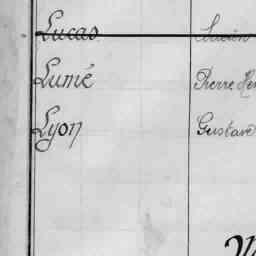 Lucas Lucien
Lumé Pierre Hen
Lyon Gustave